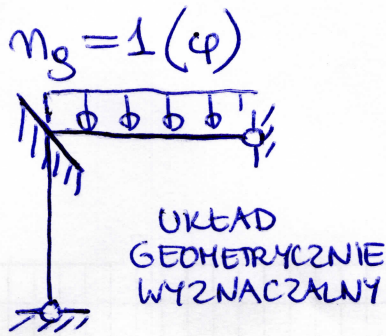 n_g = 1 (φ)
UKŁAD
GEOMETRYCZNIE
WYZNACZALNY